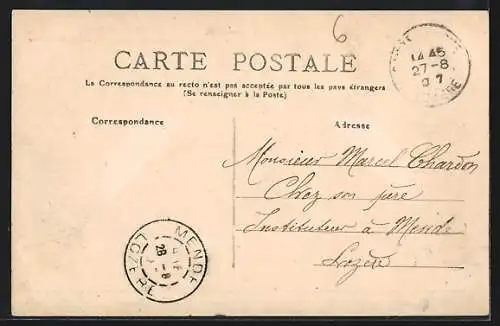 6
CARTE POSTALE
La Correspondance au recto n'est pas acceptée par tous les pays étrangers
(Se renseigner à la Poste)
Correspondance
Adresse
14 45
27-8
07
Monsieur Marcel Chardon
Chez son père
Instituteur à Mende
Lozère
MENDE
28 -8
LOZERE